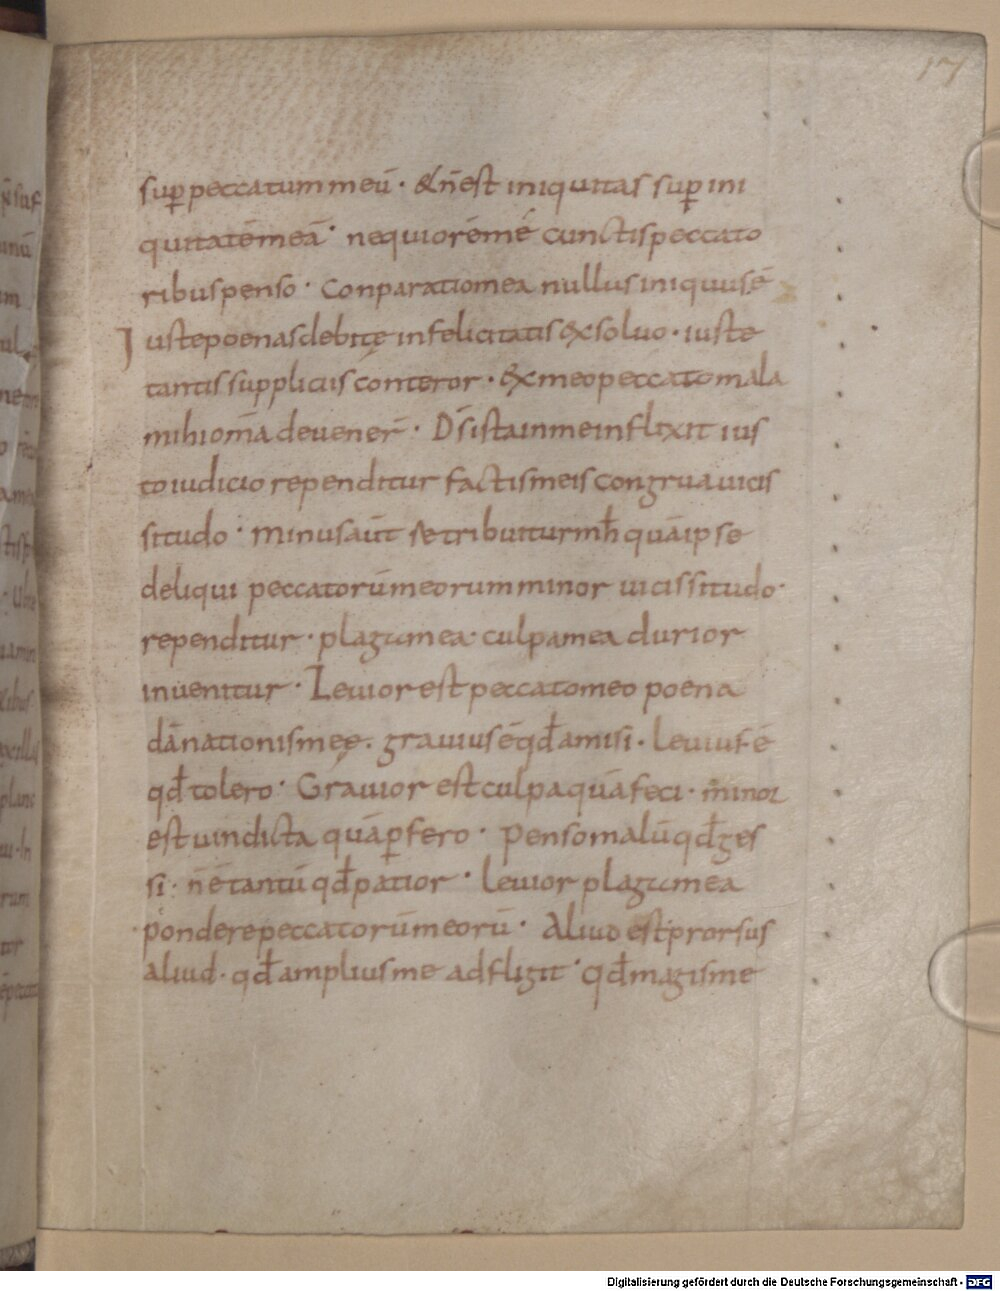 17
sup̱ peccatum meū · & n̄ est iniquitas sup̱ ini
quitatē meā · nequiorē mé cunctis peccato
ribus penso · Conparatio mea nullus iniquus ē
Iuste poenas debitę infelicitatis exsoluo · iuste
tantis suppliciis conteror · Ex meo peccato mala
mihi om̄a deuener̄ · D̄s ista in me inflixit ius
to iudicio rependitur factis meis congrua uicis
situdo · minus aūt se tribuitur mħ quā ipse
deliqui peccatorū meorum minor uicissitudo ·
rependitur · plagū mea · culpa mea durior
inuenitur · Leuior est peccato meo poena
dānationis meę . grauius ē qđ amisi · leuius ē
qđ tolero · Grauior est culpa quā feci · minor
est uindicta quā p̱fero · penso malū qđ ges
si · n̄ ē tantū qđ patior · leuior plagū mea
pondere peccatorū meorū · Aliud est prorsus
aliud · qđ amplius me adfligit · qđ magis me
Digitalisierung gefördert durch die Deutsche Forschungsgemeinschaft - DFG